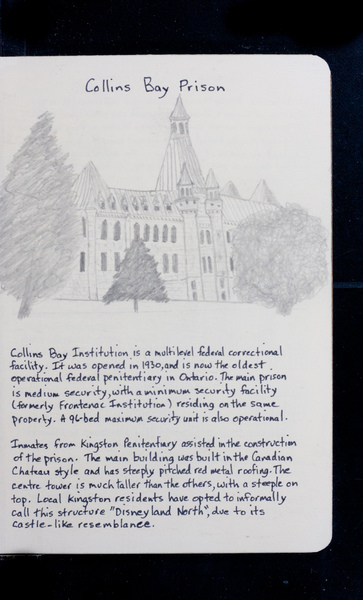 Collins Bay Prison
Collins Bay Institution is a multilevel federal correctional
facility. It was opened in 1930, and is now the oldest
operational federal penitentiary in Ontario. The main prison
is medium security, with a minimum security facility
(formerly Frontenac Institution) residing on the same
property. A 96-bed maximum security unit is also operational.
Inmates from Kingston Penitentiary assisted in the construction
of the prison. The main building was built in the Canadian
Chateau style and has steeply pitched red metal roofing. The
centre tower is much taller than the others, with a steeple on
top. Local Kingston residents have opted to informally
call this structure "Disneyland North", due to its
castle-like resemblance.